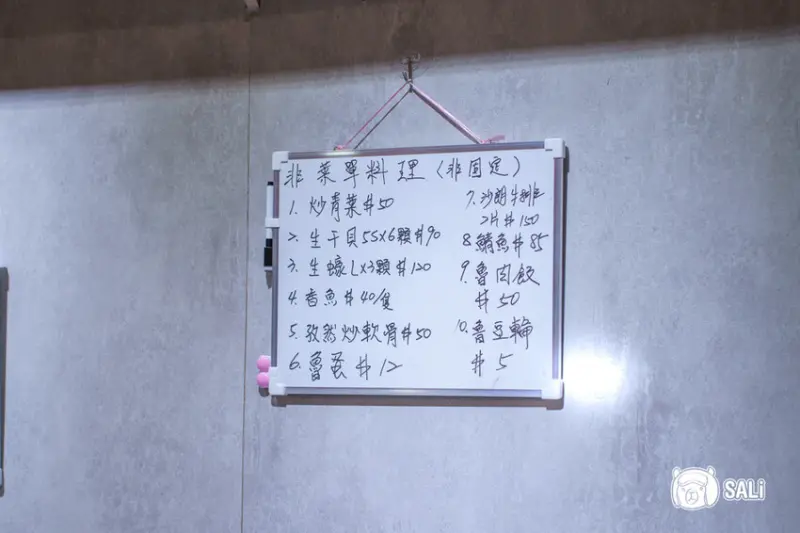 非菜單料理(非固定)
1. 炒青菜$50
2. 生干貝5S×6顆$90
3. 生蠔L×3顆$120
4. 香魚$40/隻
5. 孜然炒軟骨$50
6. 魯蛋$12
7. 沙朗牛排
2片$150
8. 鯖魚$85
9. 魯肉飯
$50
10. 魯豆輪
$5
SALi